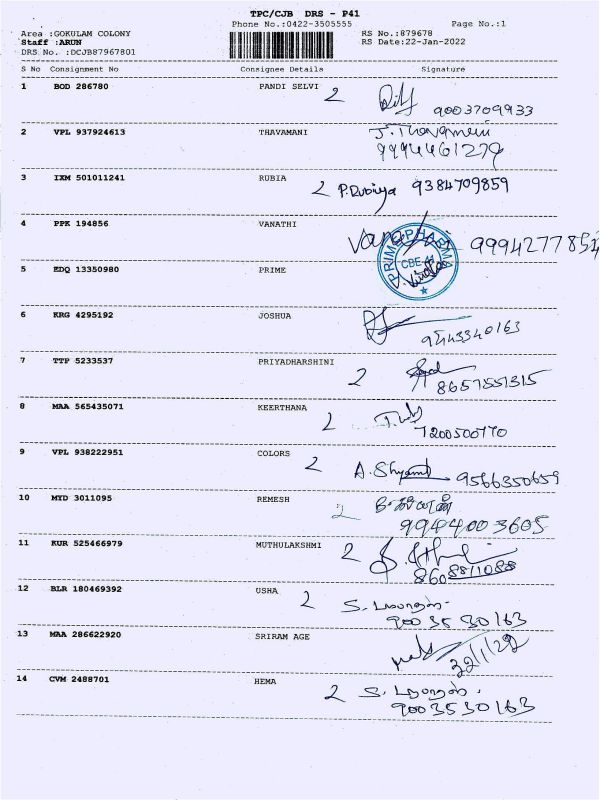 TPC/CJB DRS - P41
Phone No.:0422-3505555 Page No.:1
Area :GOKULAM COLONY RS No.:879678
Staff :ARUN RS Date:22-Jan-2022
DRS No. :DCJB87967801
S No Consignment No Consignee Details Signature
1 BOD 286780 PANDI SELVI 2
9003709933
2 VPL 937924613 THAVAMANI J. Thavamani
9994461279
3 IXM 501011241 RUBIA 2 P. Rubiya 9384709859
4 PPK 194856 VANATHI 9994277854
PRIME PHARMA
CBE-
5 EDQ 13350980 PRIME
6 KRG 4295192 JOSHUA
9543340163
7 TTP 5233537 PRIYADHARSHINI 2
8657551315
8 MAA 565435071 KEERTHANA 2
7200500770
9 VPL 938222951 COLORS 2 A. Shyam 9566350659
10 MYD 3011095 REMESH 2
9944003605
11 KUR 525466979 MUTHULAKSHMI 2
8608811088
12 BLR 180469392 USHA 2
9003530163
13 MAA 286622920 SRIRAM AGE
22/1/22
14 CVM 2488701 HEMA 2
9003530163